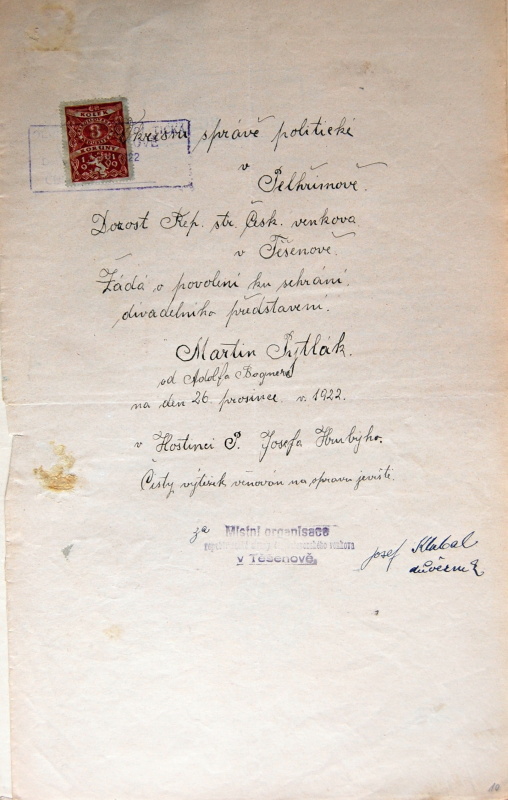 KOLEK
3
KORUNY
1919
22
Okresní správě politické
v
Pelhřimově.
Dorost Rep. str. Česk. venkova
v Těšenově.
Žádá o povolení ku sehrání
divadelního představení.
Martin Pytlák.
od Adolfa Bognera
na den 26. prosince v. 1922.
v Hostinci P. Josefa Hrubýho.
Čistý výtěžek věnován na spravu jeviště.
za Místní organisace
venkova
v Těšenově.
Josef Klabal
důvěrník